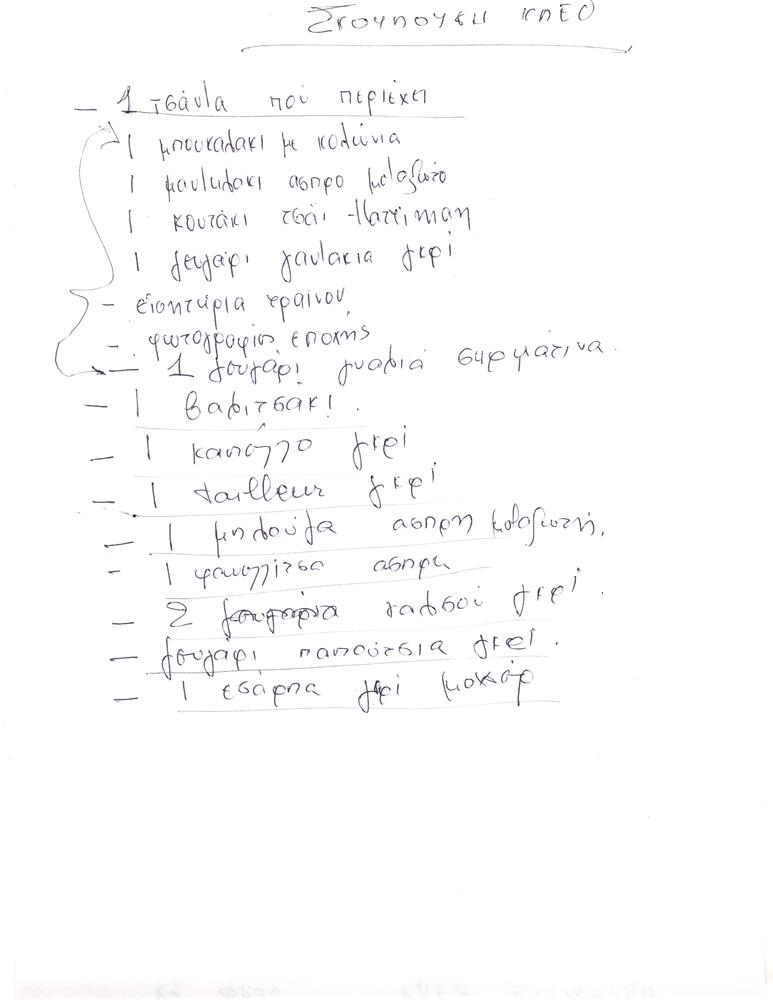 Σκουπουδι ΚΠΕΟ
— 1 τσάντα πού περιέχει
1 μπουκαλακι με κολώνια
1 μαντιλακι ασπρο μεταξωτο
1 κουτάκι τσάι Harriman
1 ζευγάρι γαντακια γκρί
- εισητήρια τραίνου
- φωτογραφίες εποχής
— 1 ζευγάρι γυαλιά συρμάτινα.
— 1 βαλιτσάκι.
— 1 καπέλλο γκρί
— 1 tailleur γκρί
— 1 μπλούζα ασπρη μεταξωτή.
- 1 φανελλίτσα ασπρη
— 2 ζευγάρια καλσού γκρί.
— ζευγάρι παπούτσια γκρί.
— 1 εσάρπα γκρί μοχαίρ